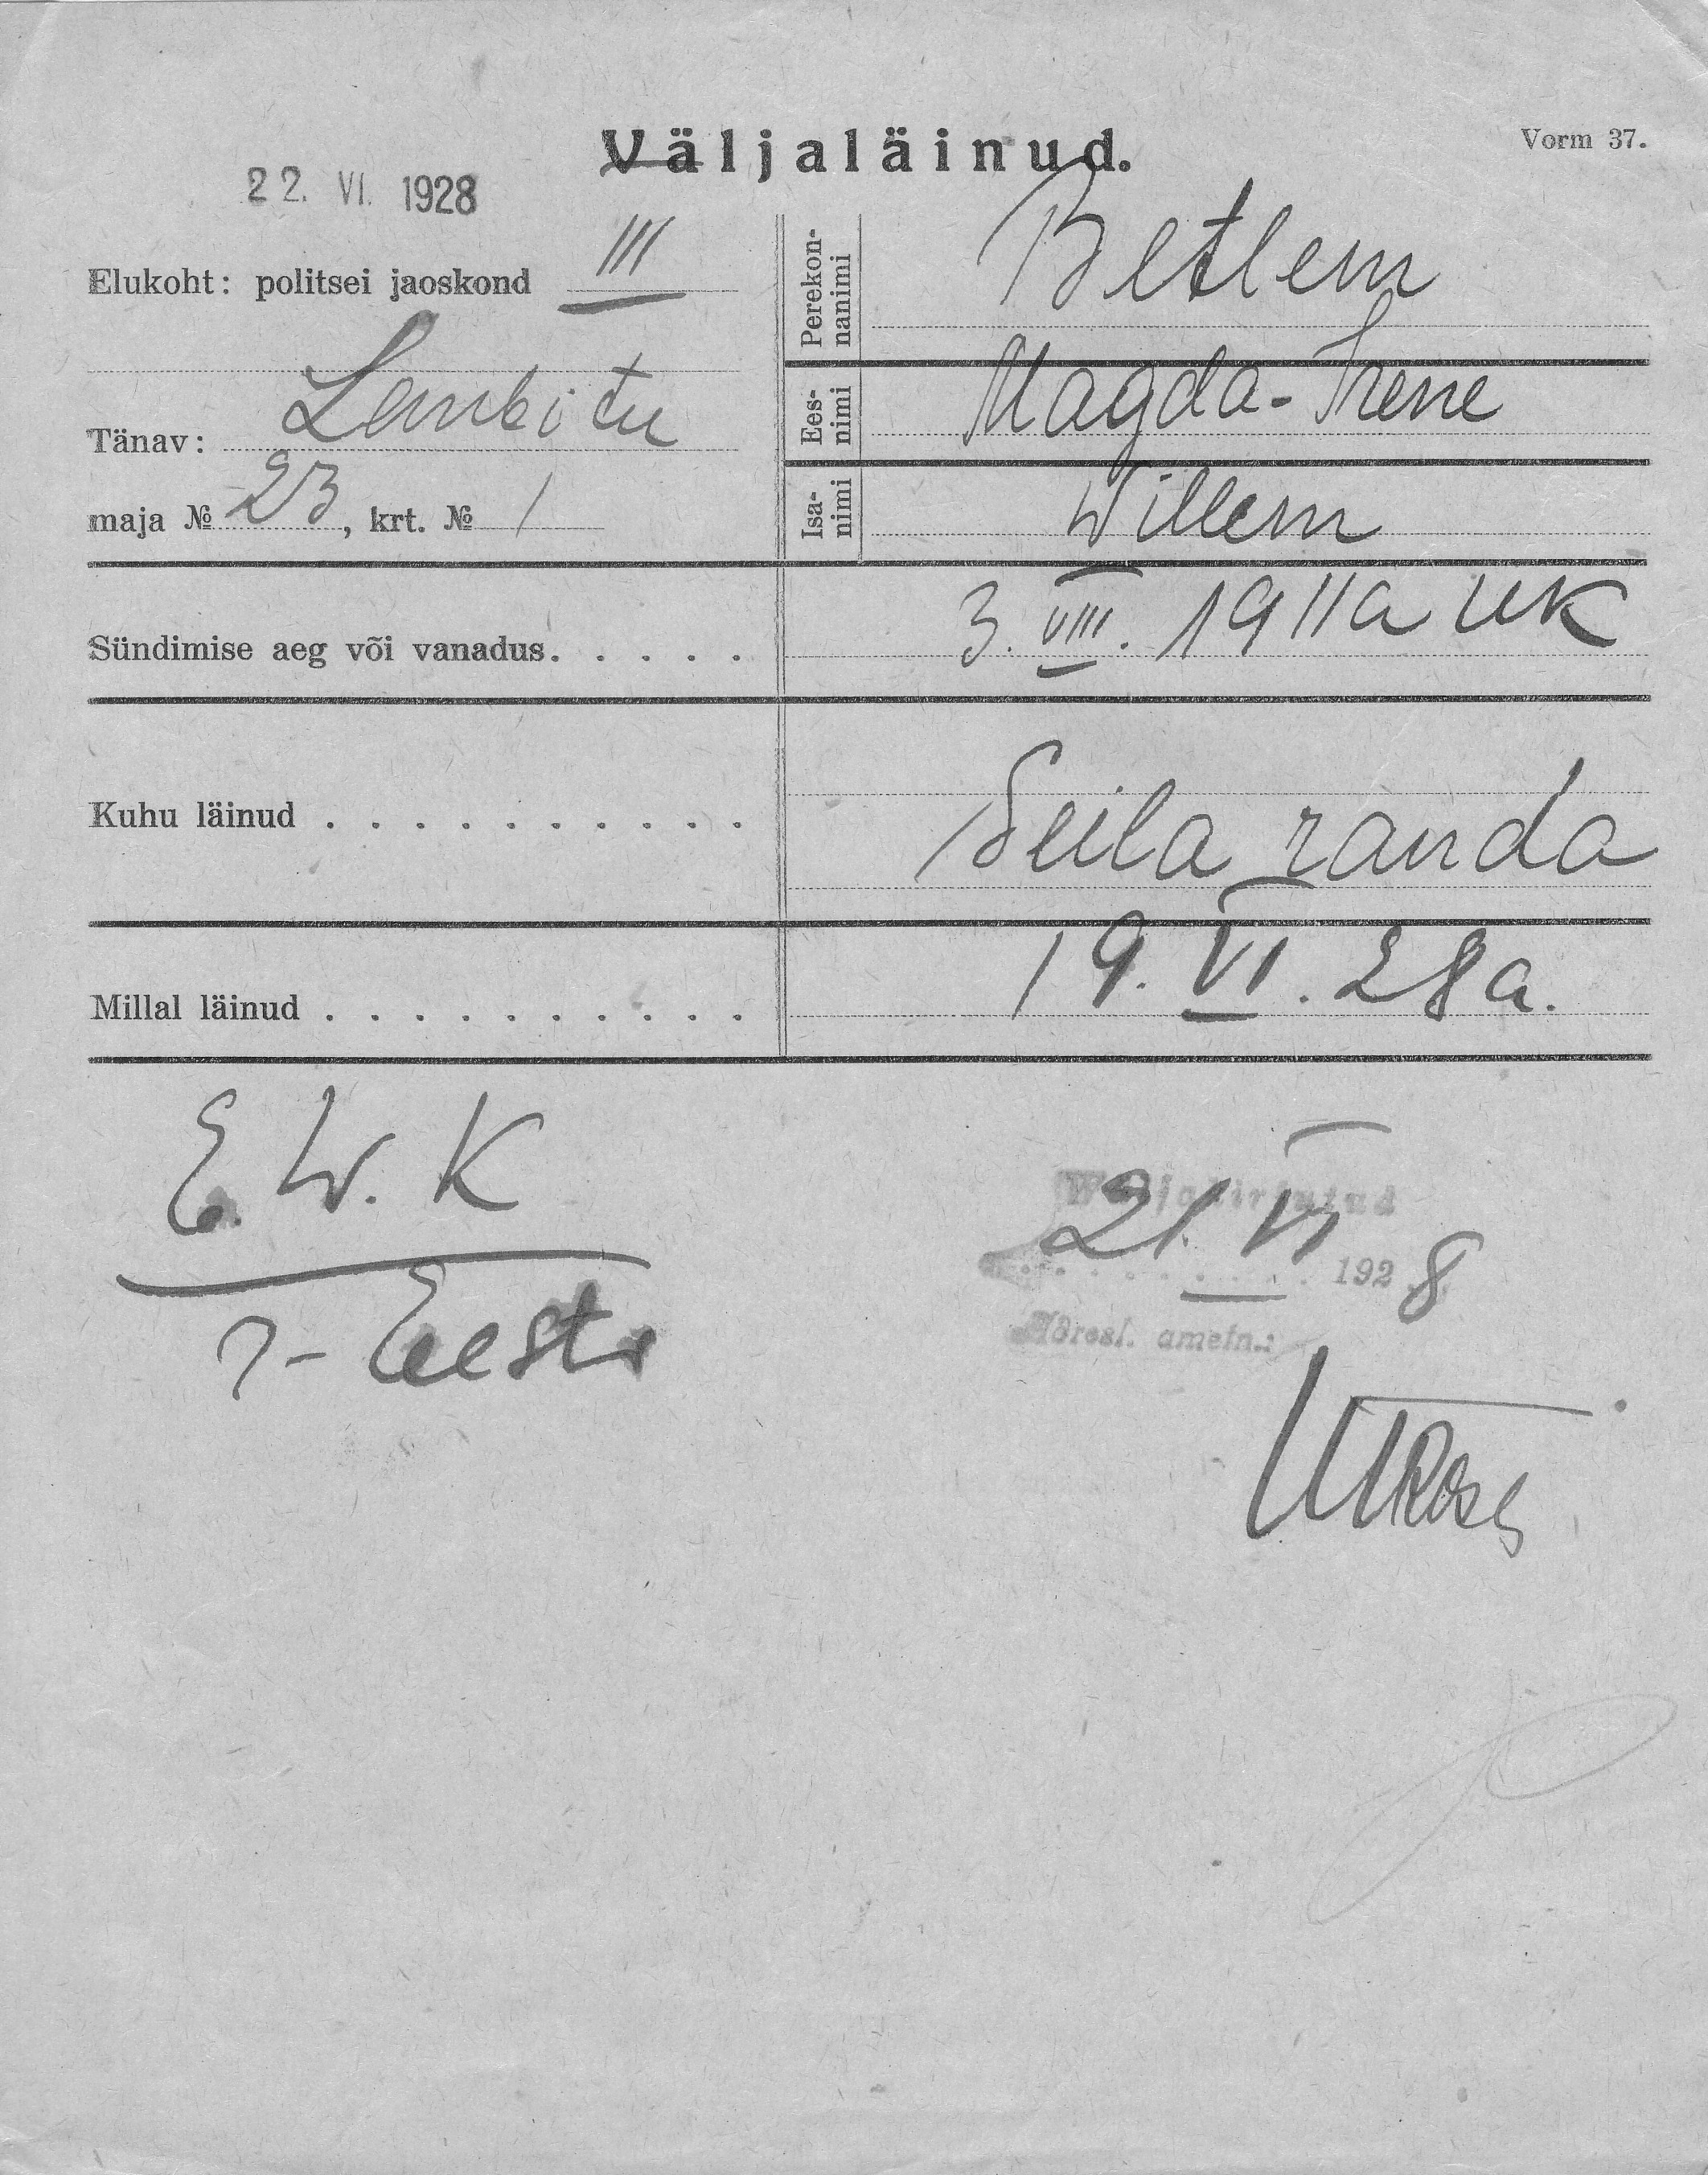 Väljaläinud.
Vorm 37.
22. VI. 1928
Elukoht: politsei jaoskond III
Tänav: Lembitu
maja № 23, krt. № 1
Perekon-
nanimi
Betlem
Ees-
nimi
Magda-Irene
Isa-
nimi
Willem
Sündimise aeg või vanadus. . . . . 3. VIII. 1911 a uk
Kuhu läinud . . . . . . . . . . Seila randa
Millal läinud . . . . . . . . . . 19. VI. 28 a.
E. W. K
Eesti
Wäljakirjutud
21. VI 1928
ametn.: